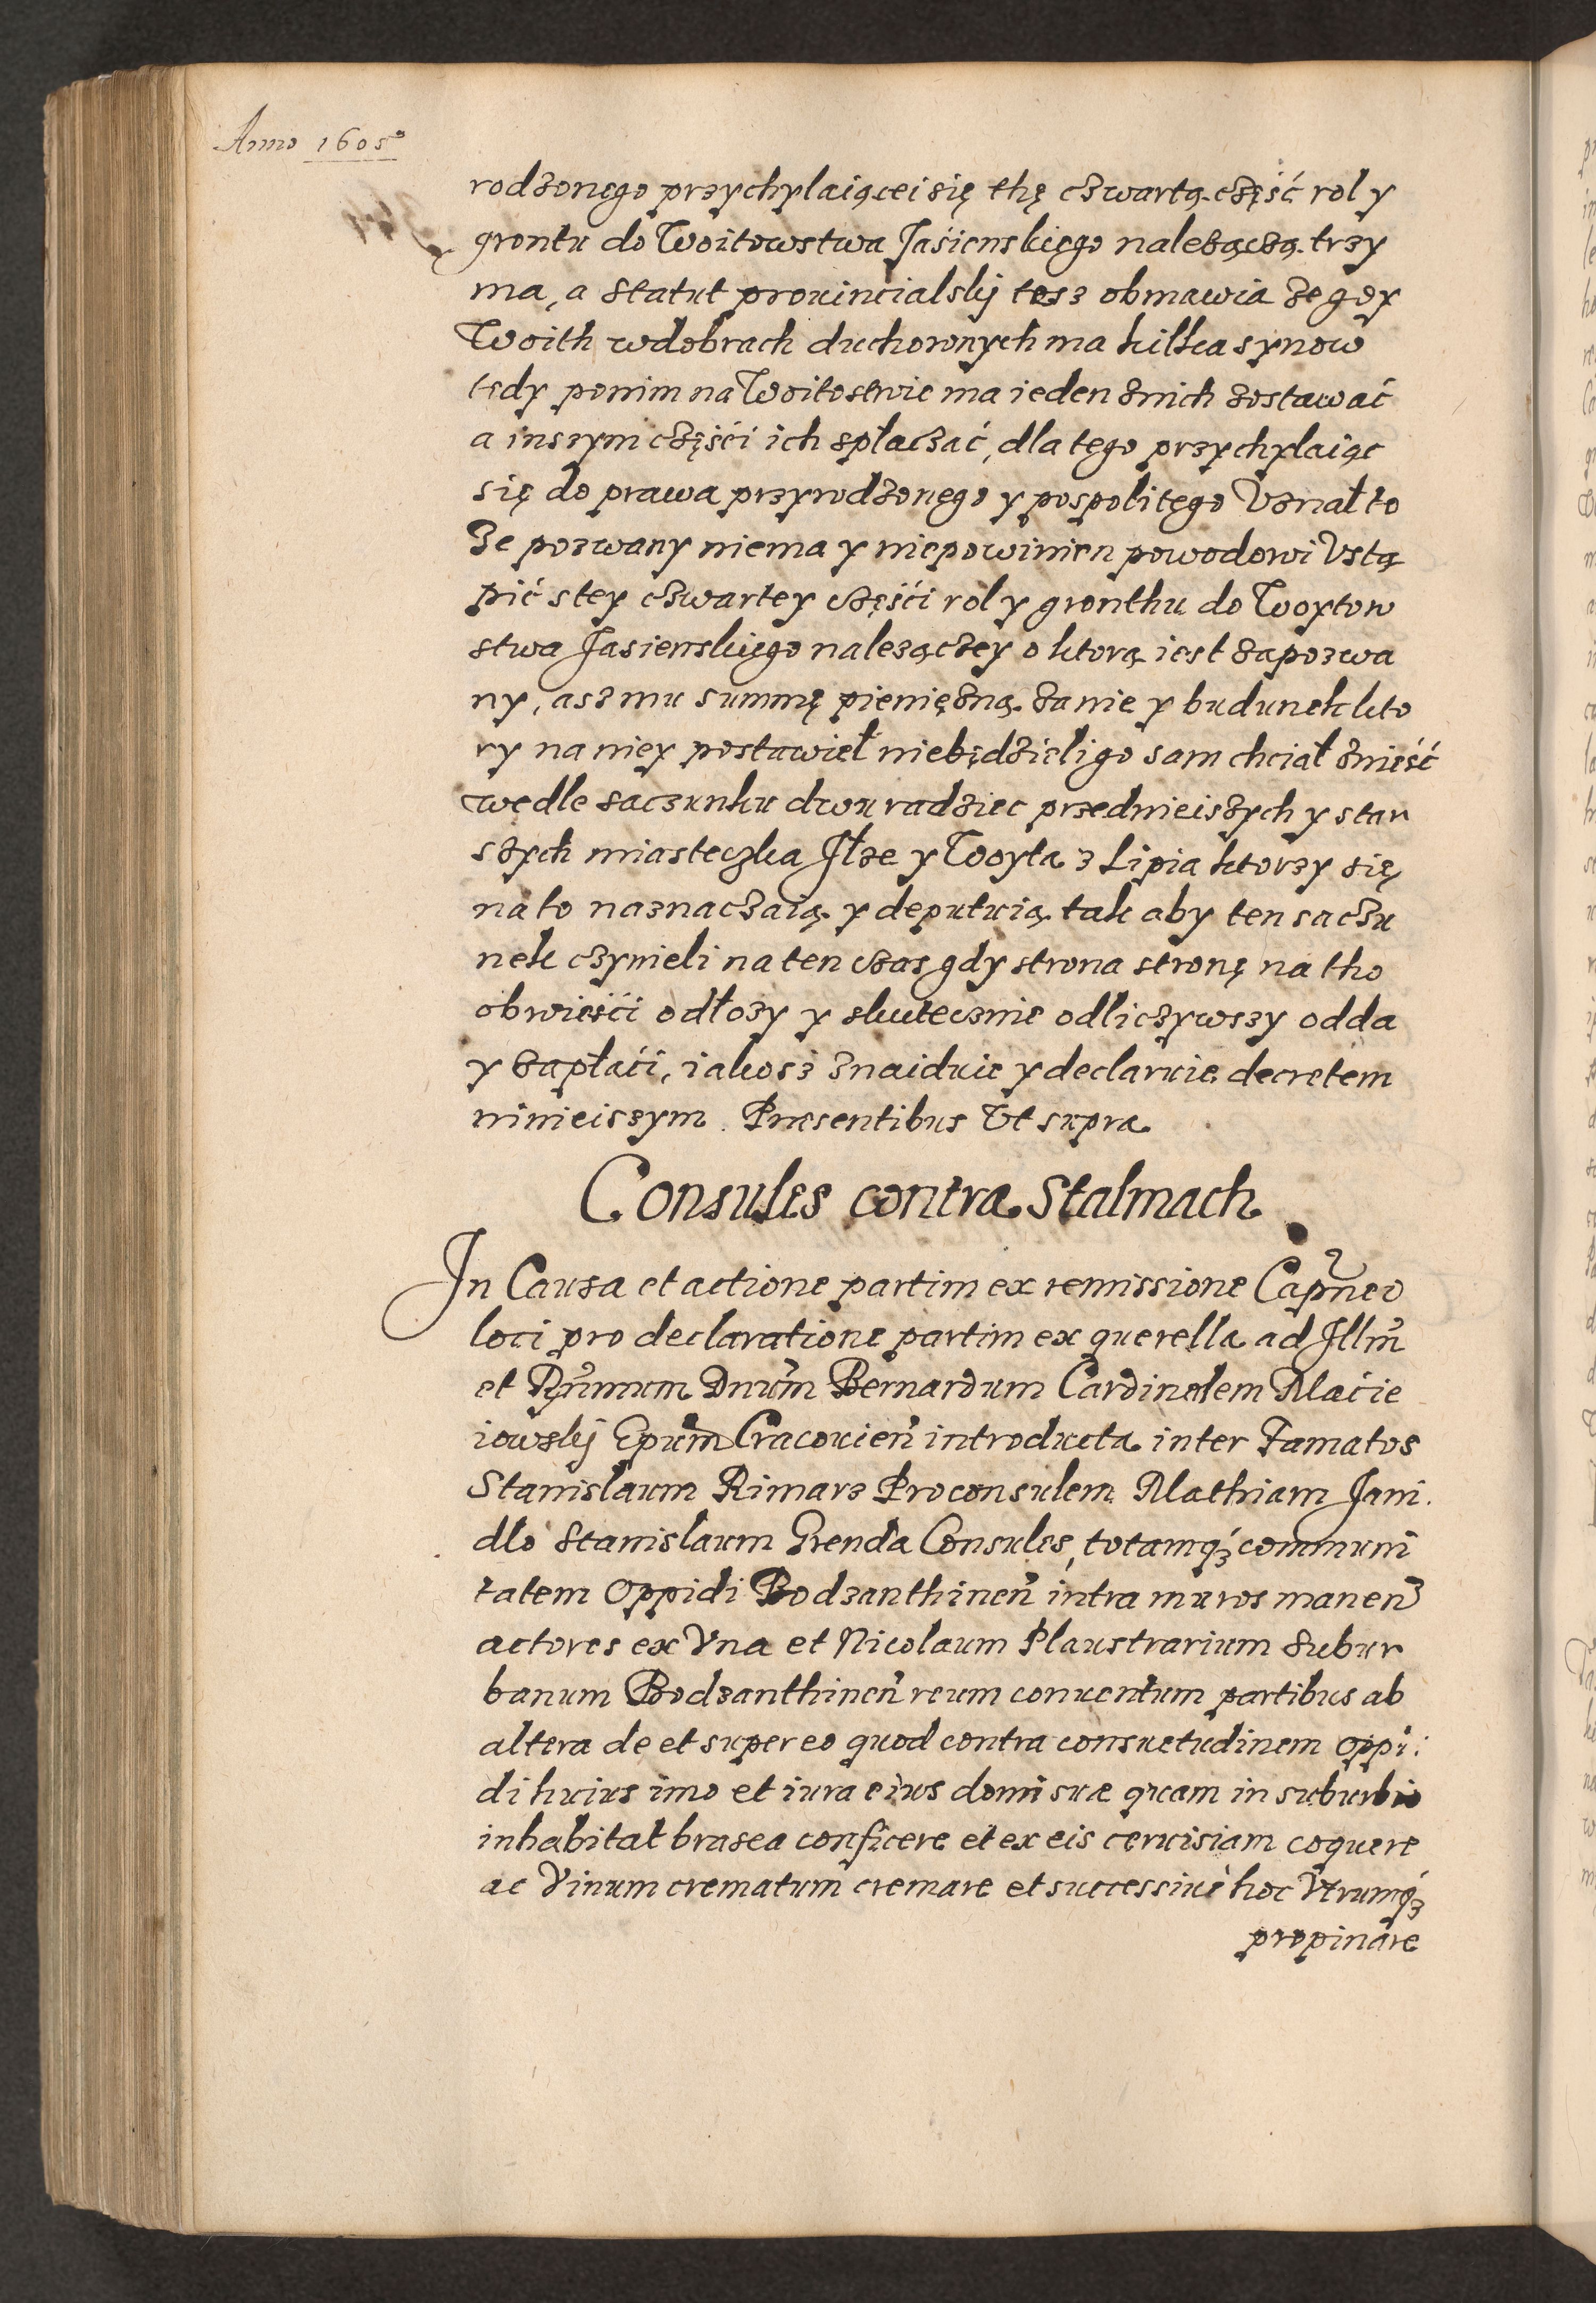 Anno 1605
rodzonego przychylaiącei się thę czwartą część rol y
grontu do Woitowstwa Jasienskiego nalezączą trzy
ma, a Statut prouincialskij tesz obmawia ze gdy
Woith wdobrach duchownych ma kilka synow
tedy ponim na Woitostwie ma ieden znich zostawać
a inszym części ich spłaczać, dla tego przychylaiąc
się do prawa przyrodzonego y pospolitego Vznał to
Ze pozwany niema y niepowinien powodowi Vstą
pić s tey czwartey części rol y gronthu do Woytow
stwa Jasienskiego nalezączey o ktorą iest zapozwa
ny, asz mu summę pieniężną za nie y budunek kto
ry na niey postawieł niebędzieli go sam chciał znieść
wedle saczunku dwu radziec przednieiszych y star
szych miasteczka Jłze y Woyta z Lipia ktorzy się
na to naznaczaią y deputuią tak aby ten saczu
nek czynieli na ten czas gdy strona stronę na tho
obwieści odłozy y skutecznie odliczywszy odda
y zapłaći, iakosz znaiduie y declaruie decretem
ninieiszym. Præsentibus Vt supra
Consules contra Stalmach
In Causa et actione partim ex remissione Capnei
loci pro declaratione partim ex querella ad Illm̃
et Rñmum Dnũm Bernardum Cardinalem Macie
iowskij Epum̃ Cracouien̄ introducta inter Famatos
Stanislaum Rimarz Proconsulem Mathiam Jani
dlo Stanislaum Grenda Consules, totamq; communi
tatem Oppidi Bodzanthinen̄ intra muros manen̄
actores ex Vna et Nicolaum Plaustrarium Subur
banum Bodzanthinen̄ reum conuentum partibus ab
altera de et super eo quod contra consuetudinem oppi:
di huius imo et iura eius domi suæ quam in suburbio
inhabitat brasea conficere et ex eis ceruisiam coquere
ac Vinum crematum cremare et successiuè hoc Vtrumq;
propinare